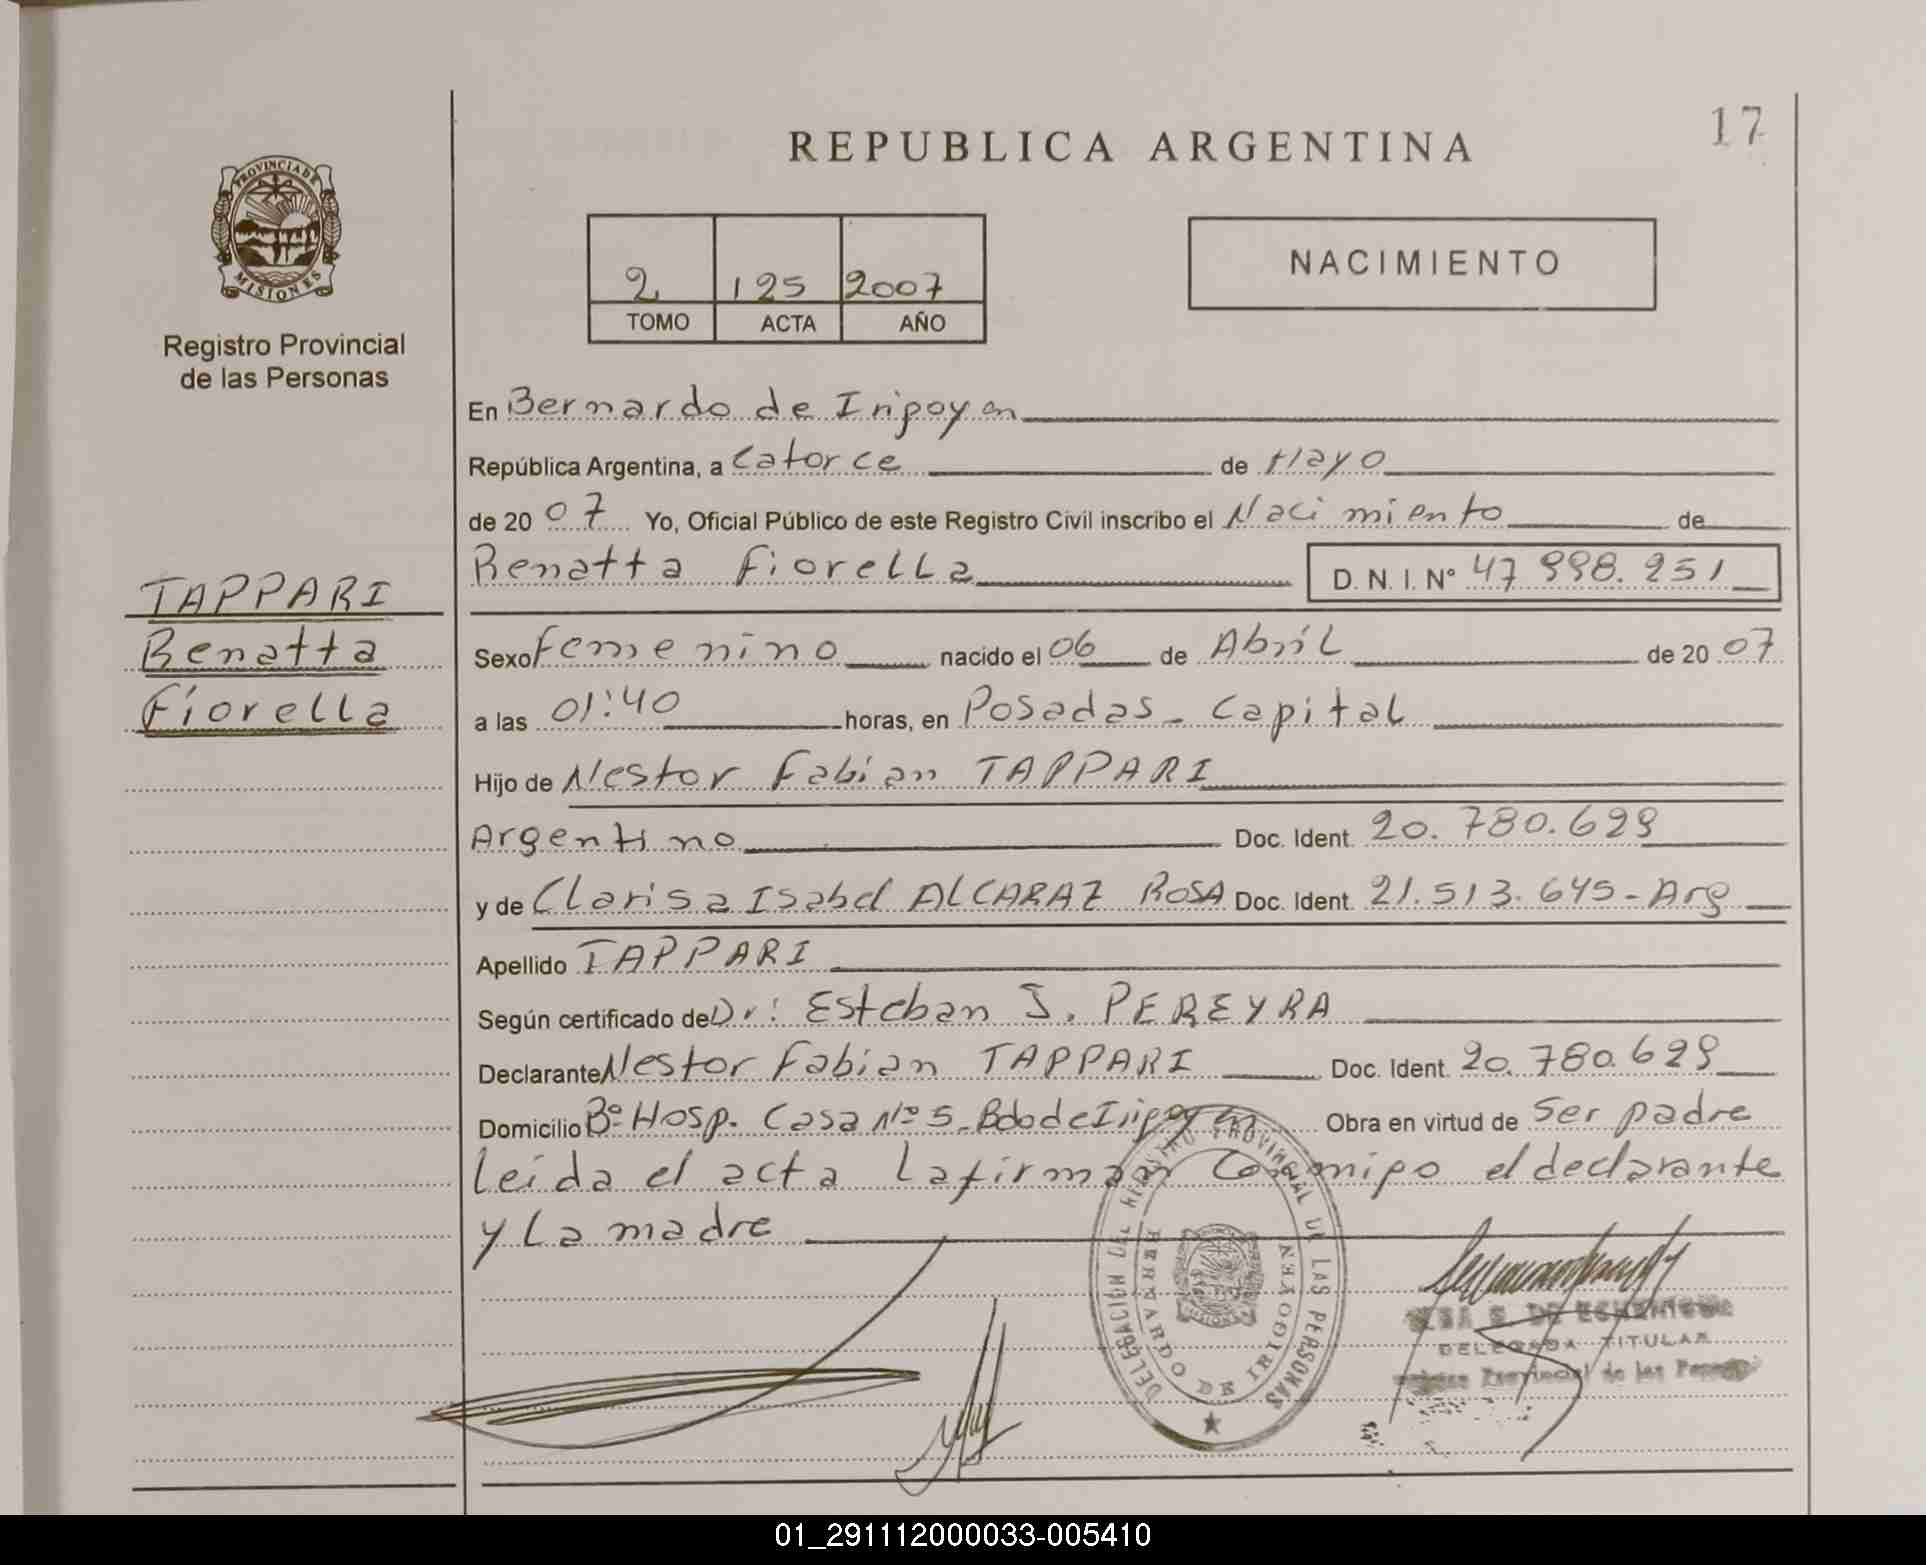 17
REPUBLICA ARGENTINA
PROVINCIA DE
MISIONES
Registro Provincial
de las Personas
2 125 2007
TOMO ACTA AÑO
NACIMIENTO
En Bernardo de Irigoyen
República Argentina, a Catorce de Mayo
de 20 07 Yo, Oficial Público de este Registro Civil inscribo el Nacimiento de
Renatta Fiorella D. N. I. Nº 47 998.251
TAPPARI
Renatta
Fiorella
Sexo Femenino nacido el 06 de Abril de 20 07
a las 01:40 horas, en Posadas - Capital
Hijo de Nestor Fabian TAPPARI
Argentino Doc. Ident. 20.780.629
y de Clarisa Isabel ALCARAZ ROSA Doc. Ident. 21.513.645 - Arg
Apellido TAPPARI
Según certificado de Dr: Esteban J. PEREYRA
Declarante Nestor Fabian TAPPARI Doc. Ident. 20.780.629
Domicilio Bº Hosp. Casa Nº 5 - Bdo de Irigoyen Obra en virtud de ser padre
Leída el acta La firman Conmigo el declarante
y La madre
DELEGACION DEL REGISTRO PROVINCIAL DE LAS PERSONAS
BERNARDO DE IRIGOYEN
DE
DELEGADA TITULAR
Provincial de las
01_291112000033-005410